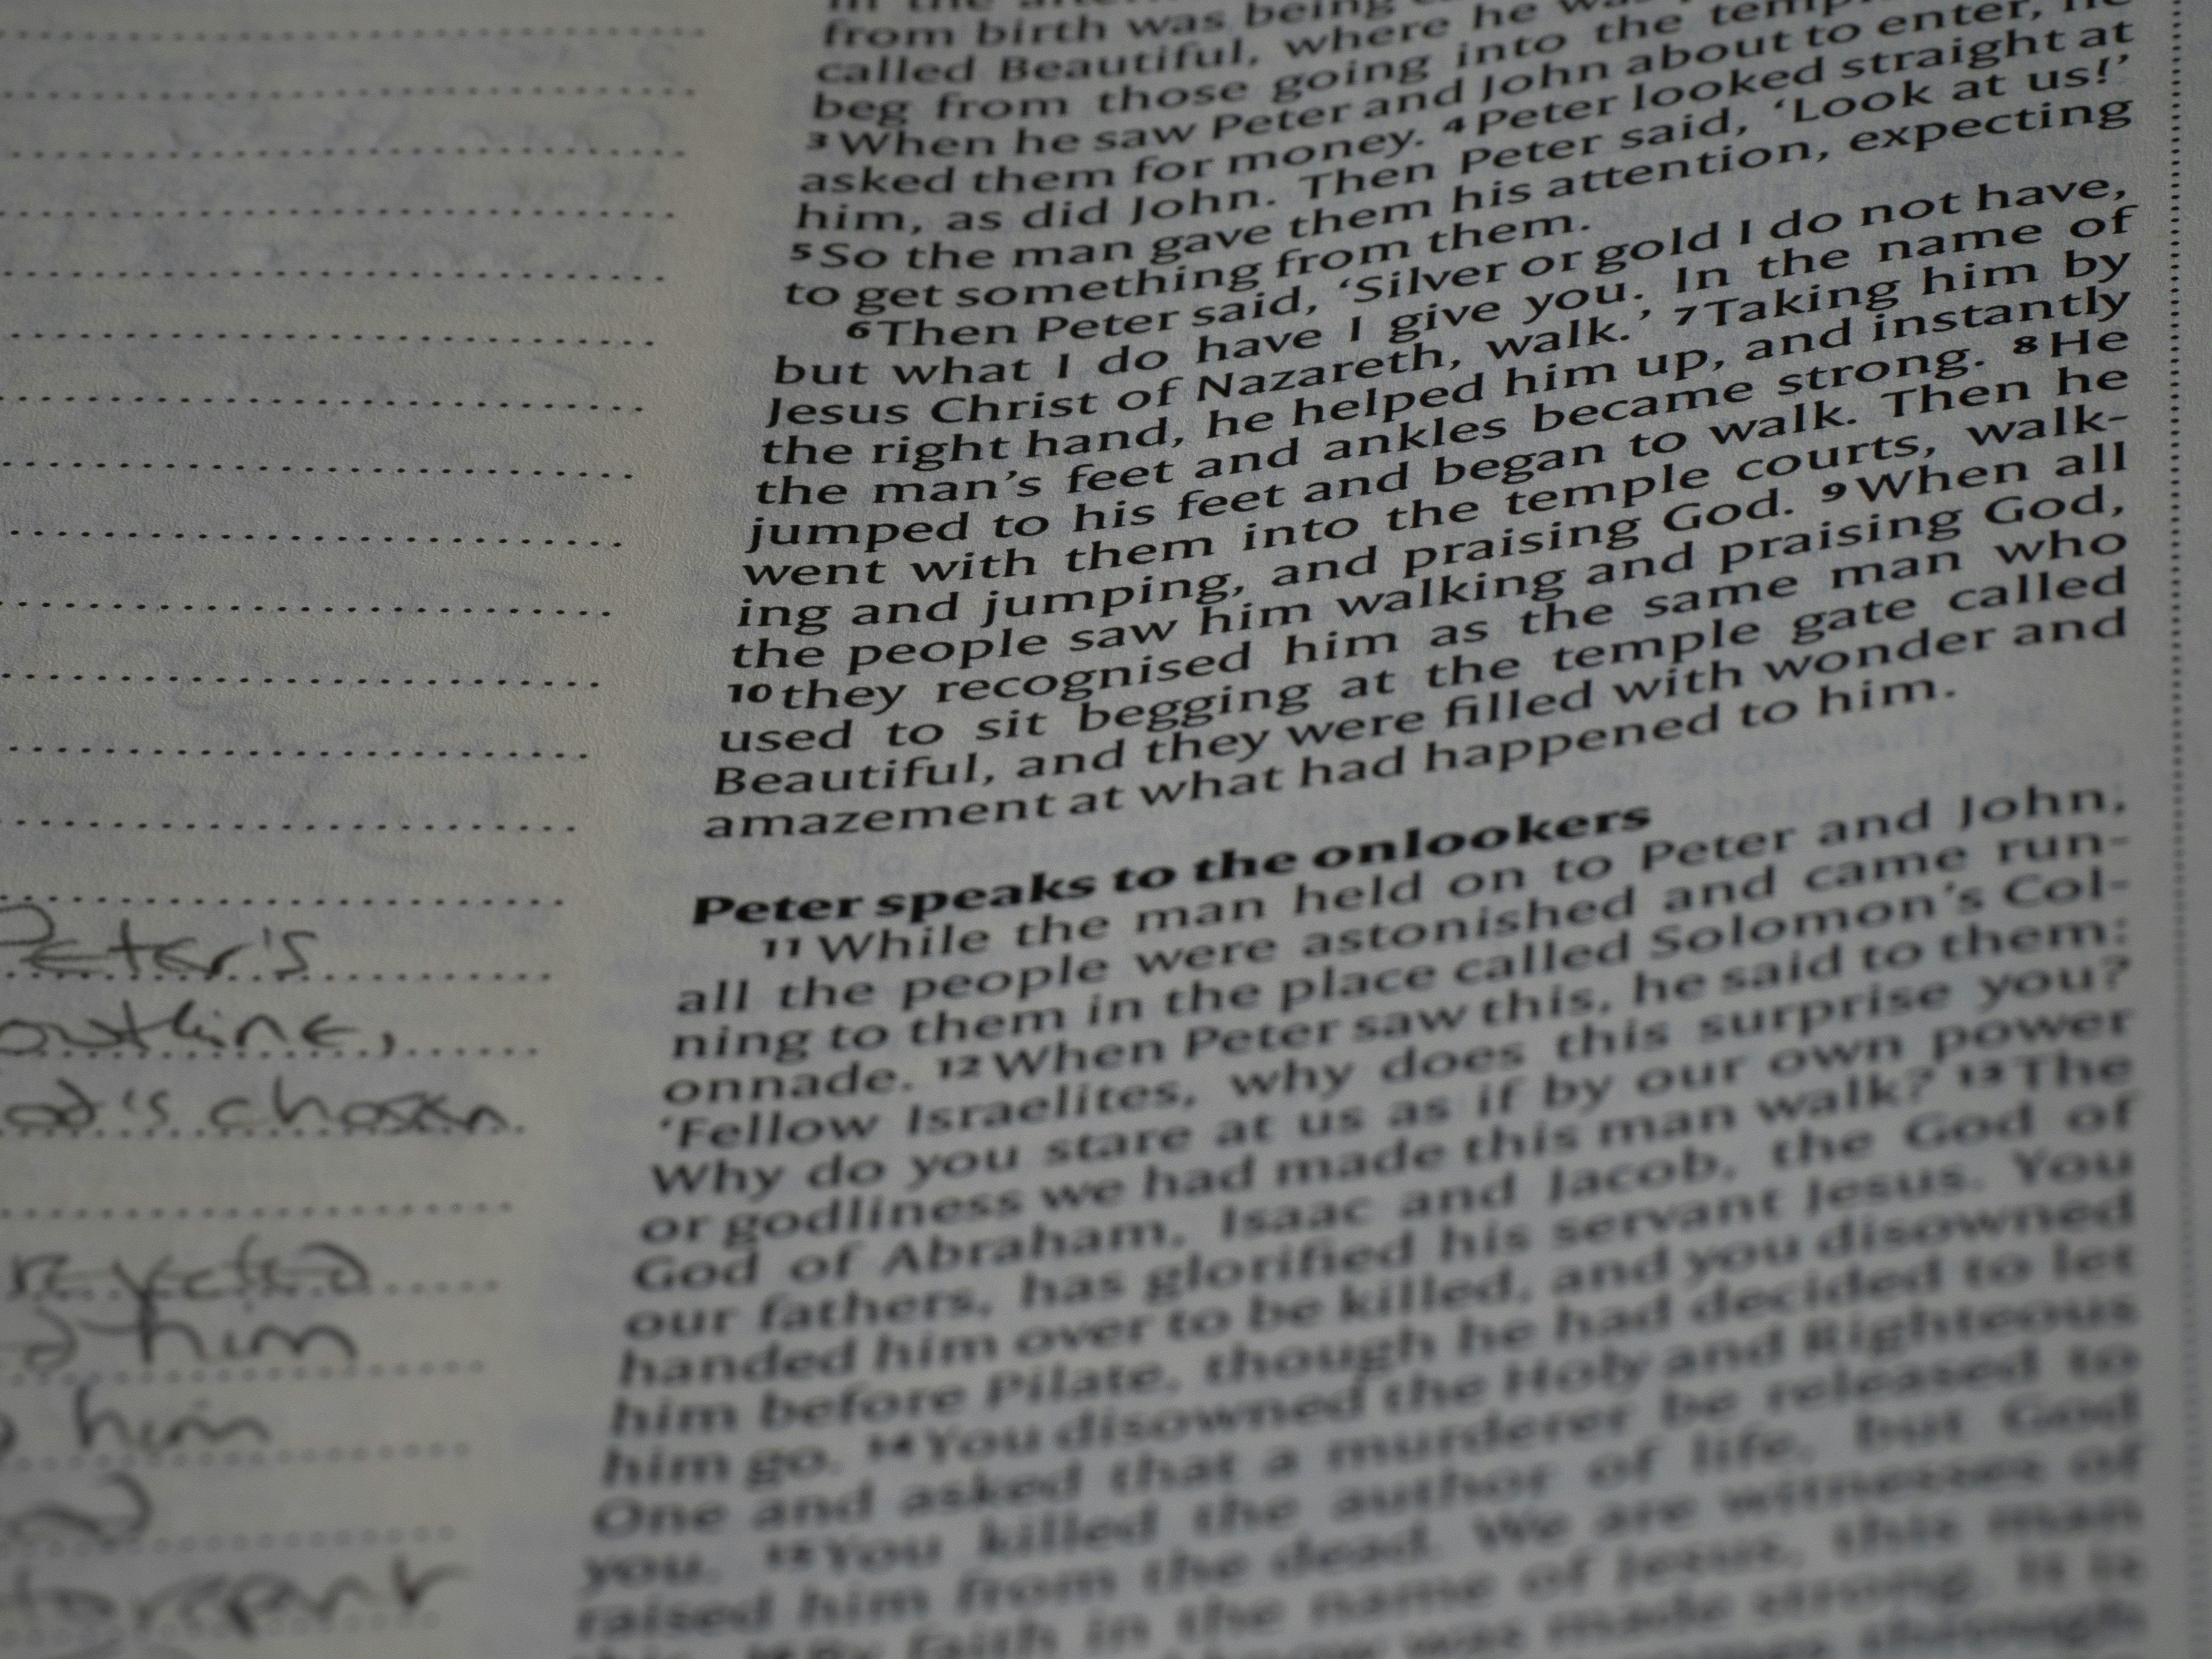 Peter's
outline,
chosen
rejected
him
him
to repent
from birth was being
called Beautiful, where he was
beg from those going into the
³When he saw Peter and John about to enter, he
asked them for money. ⁴Peter looked straight at
him, as did John. Then Peter said, ‘Look at us!’
⁵So the man gave them his attention, expecting
to get something from them.
⁶Then Peter said, ‘Silver or gold I do not have,
but what I do have I give you. In the name of
Jesus Christ of Nazareth, walk.’ ⁷Taking him by
the right hand, he helped him up, and instantly
the man’s feet and ankles became strong. ⁸He
jumped to his feet and began to walk. Then he
went with them into the temple courts, walk-
ing and jumping, and praising God. ⁹When all
the people saw him walking and praising God,
¹⁰they recognised him as the same man who
used to sit begging at the temple gate called
Beautiful, and they were filled with wonder and
amazement at what had happened to him.
Peter speaks to the onlookers
¹¹While the man held on to Peter and John,
all the people were astonished and came run-
ning to them in the place called Solomon’s Col-
onnade. ¹²When Peter saw this, he said to them:
‘Fellow Israelites, why does this surprise you?
Why do you stare at us as if by our own power
or godliness we had made this man walk? ¹³The
God of Abraham, Isaac and Jacob, the God of
our fathers, has glorified his servant Jesus. You
handed him over to be killed, and you disowned
him before Pilate, though he had decided to let
him go. ¹⁴You disowned the Holy and Righteous
One and asked that a murderer be released to
you. ¹⁵You killed the author of life, but God
raised him from the dead. We are witnesses of
this. ¹⁶By faith in the name of Jesus, this man
was made strong. It is
through